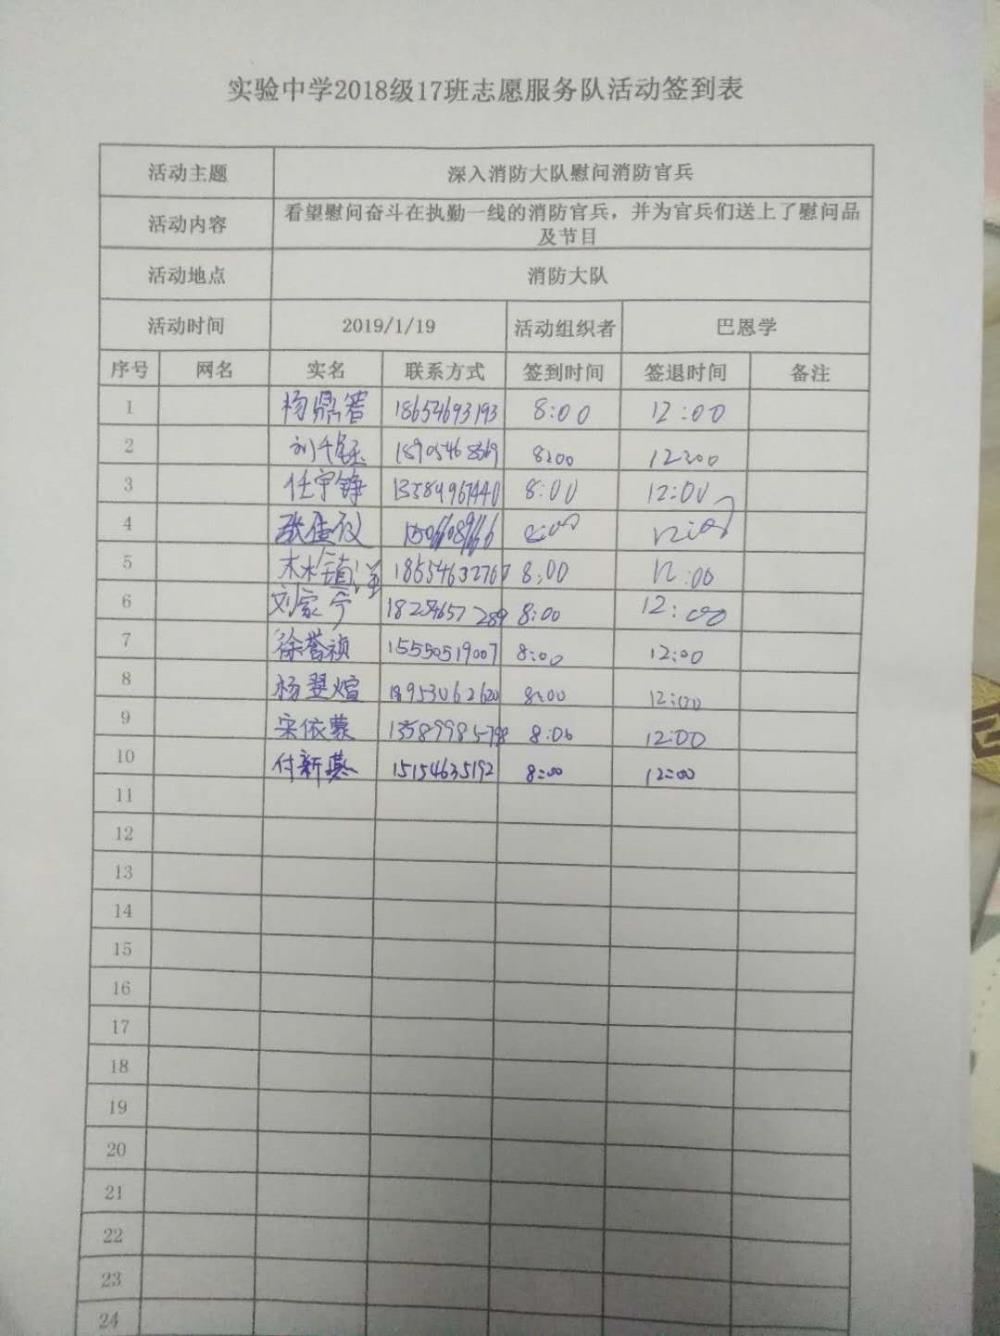 实验中学2018级17班志愿服务队活动签到表
活动主题 深入消防大队慰问消防官兵
活动内容 看望慰问奋斗在执勤一线的消防官兵，并为官兵们送上了慰问品
及节目
活动地点 消防大队
活动时间 2019/1/19 活动组织者 巴恩学
序号 网名 实名 联系方式 签到时间 签退时间 备注
1 18654693193 8:00 12:00
2 8:00 12:00
3 任宇铮 13589967440 8:00 12:00
4 8:00 12:00
5 8:00 12:00
6 刘家宁 18254657289 8:00 12:00
7 徐誉祯 15550519007 8:00 12:00
8 杨翌煊 18953062620 8:00 12:00
9 宋依蒙 8:00 12:00
10 付新燕 15154635192 8:00 12:00
11
12
13
14
15
16
17
18
19
20
21
22
23
24